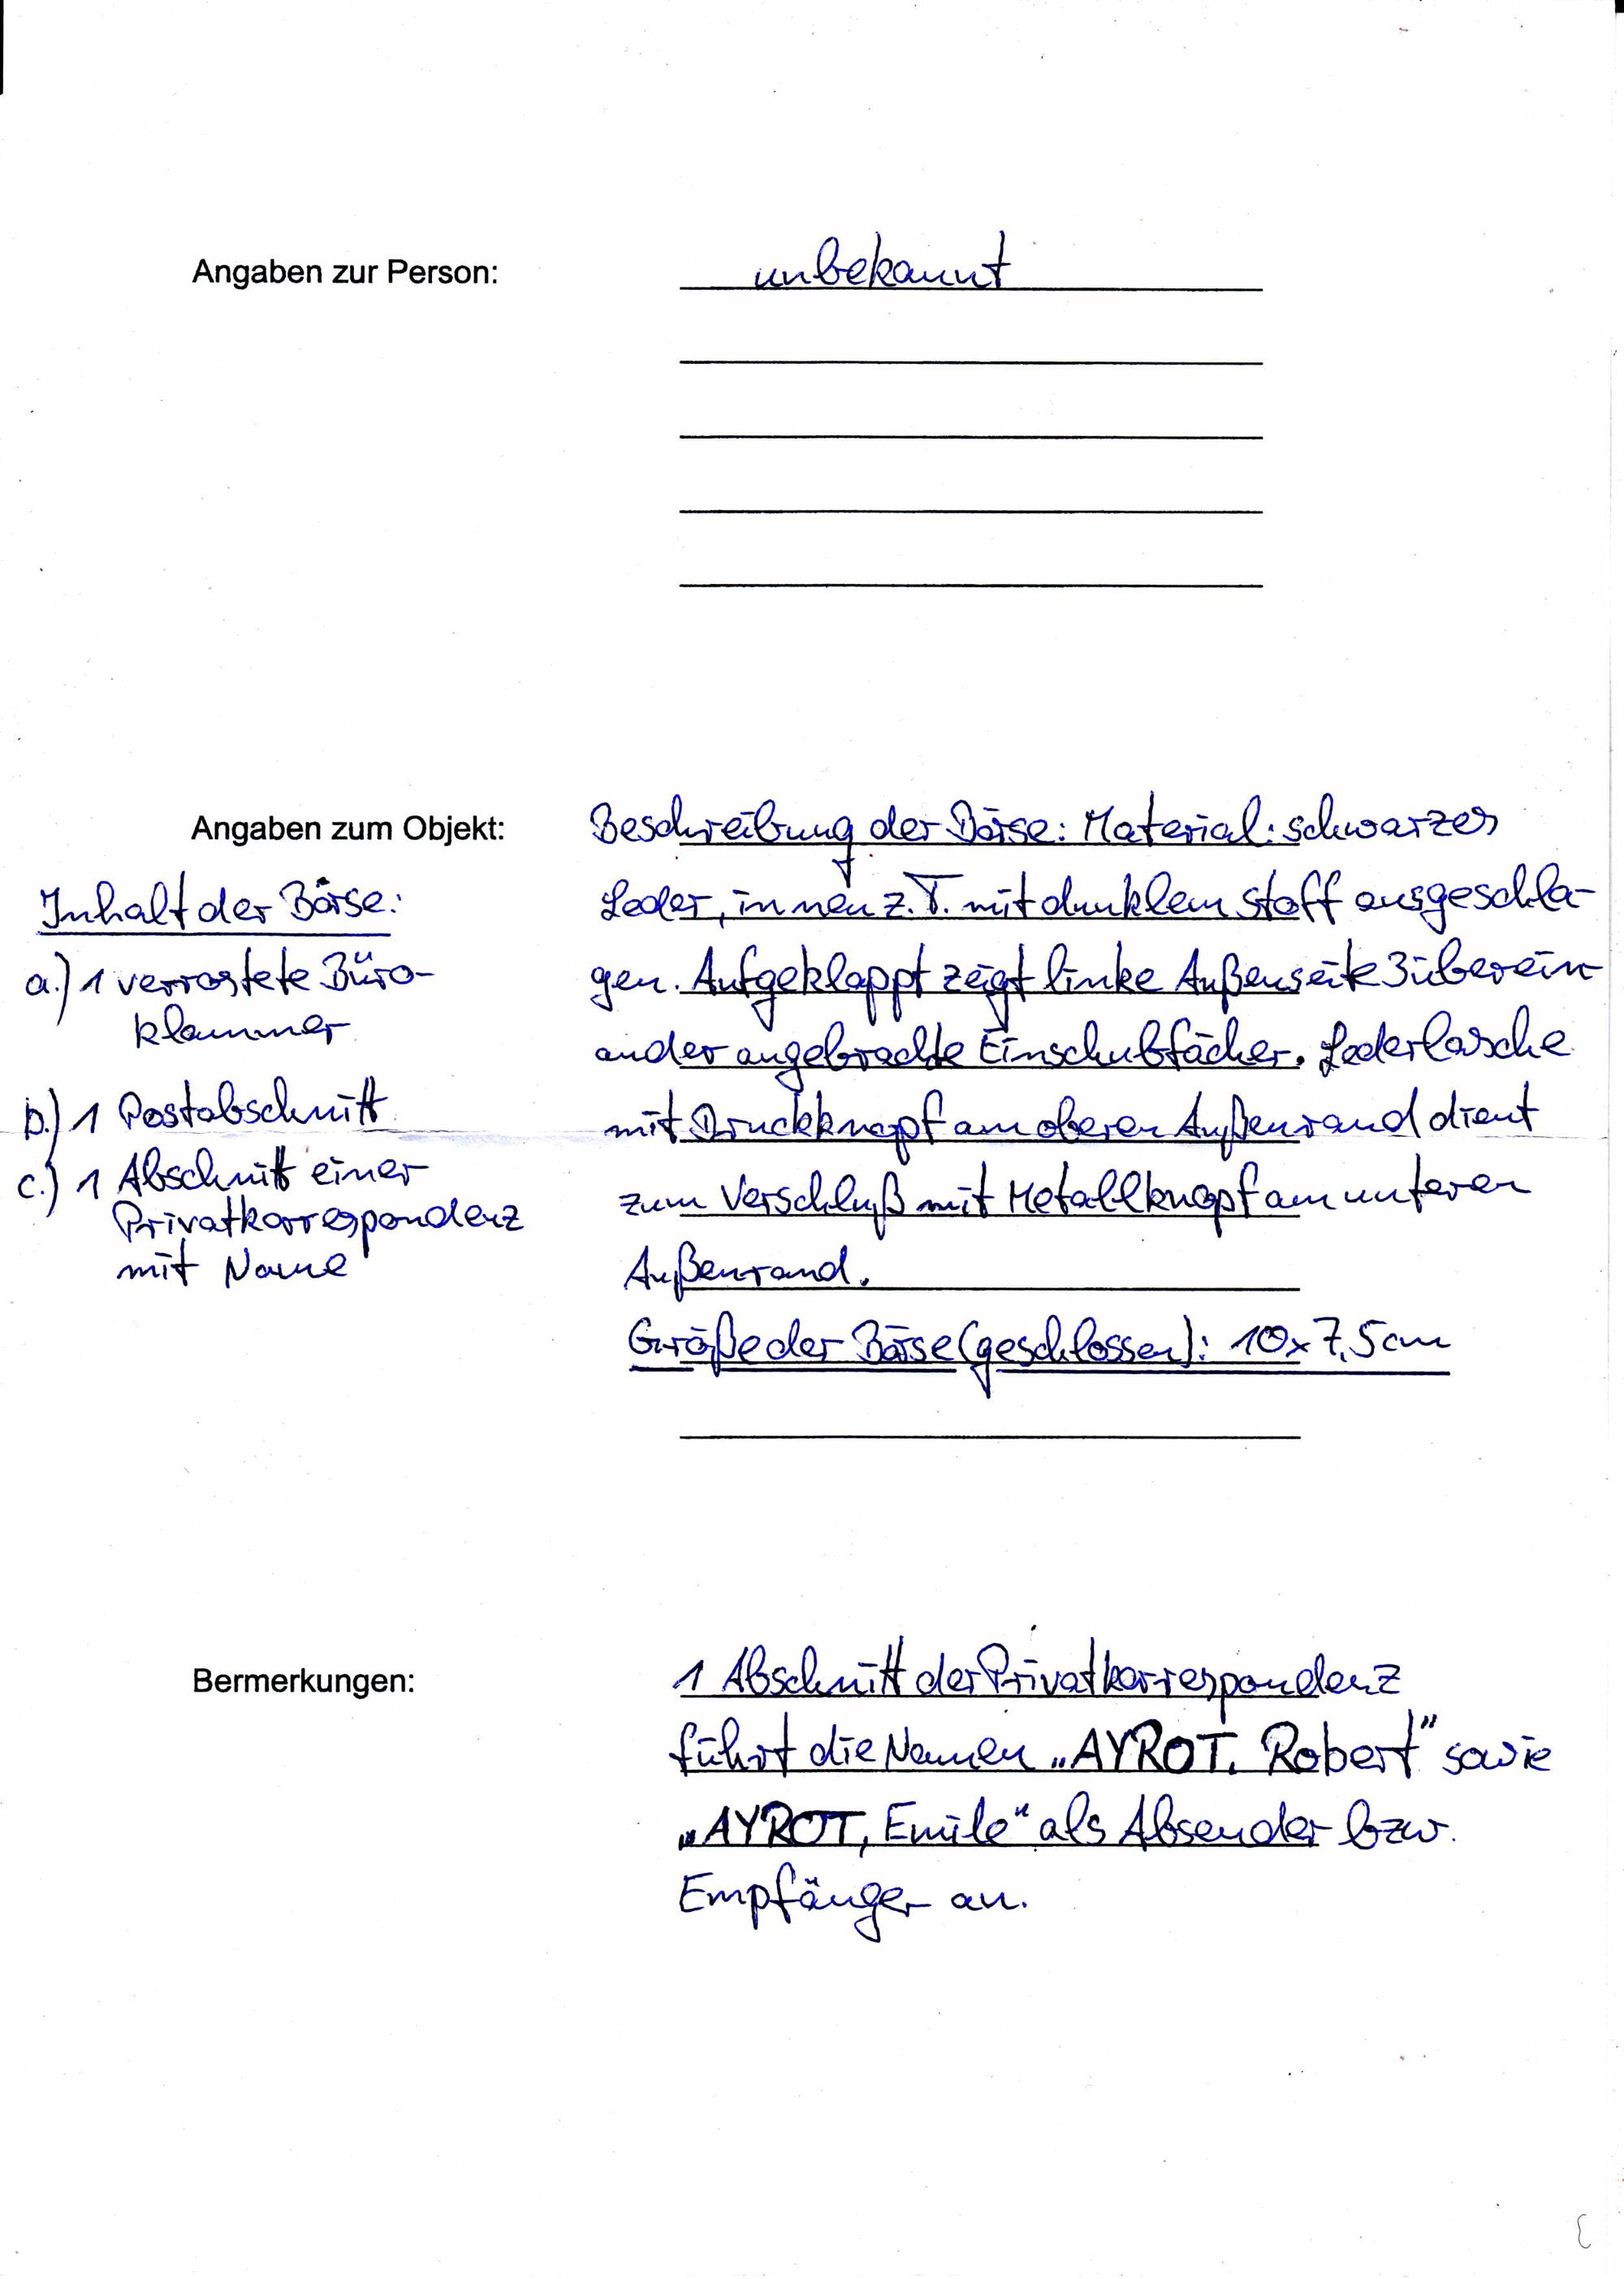 Angaben zur Person: unbekannt
Angaben zum Objekt:
Beschreibung der Börse: Material: schwarzes
Leder, innen z.T. mit dunklem Stoff ausgeschla-
gen. Aufgeklappt zeigt linke Außenseite 3 überein-
ander angebrachte Einschubfächer. Lederlasche
mit Druckknopf am oberen Außenrand dient
zum Verschluß mit Metallknopf am unteren
Außenrand.
Größe der Börse (geschlossen): 10 x 7,5 cm
Inhalt der Börse:
a.) 1 verrostete Büro-
klammer
b.) 1 Postabschnitt
c.) 1 Abschnitt einer
Privatkorrespondenz
mit Name
Bermerkungen:
1 Abschnitt der Privatkorrespondenz
führt die Namen „AYROT, Robert" sowie
„AYROT, Emile" als Absender bzw.
Empfänger an.